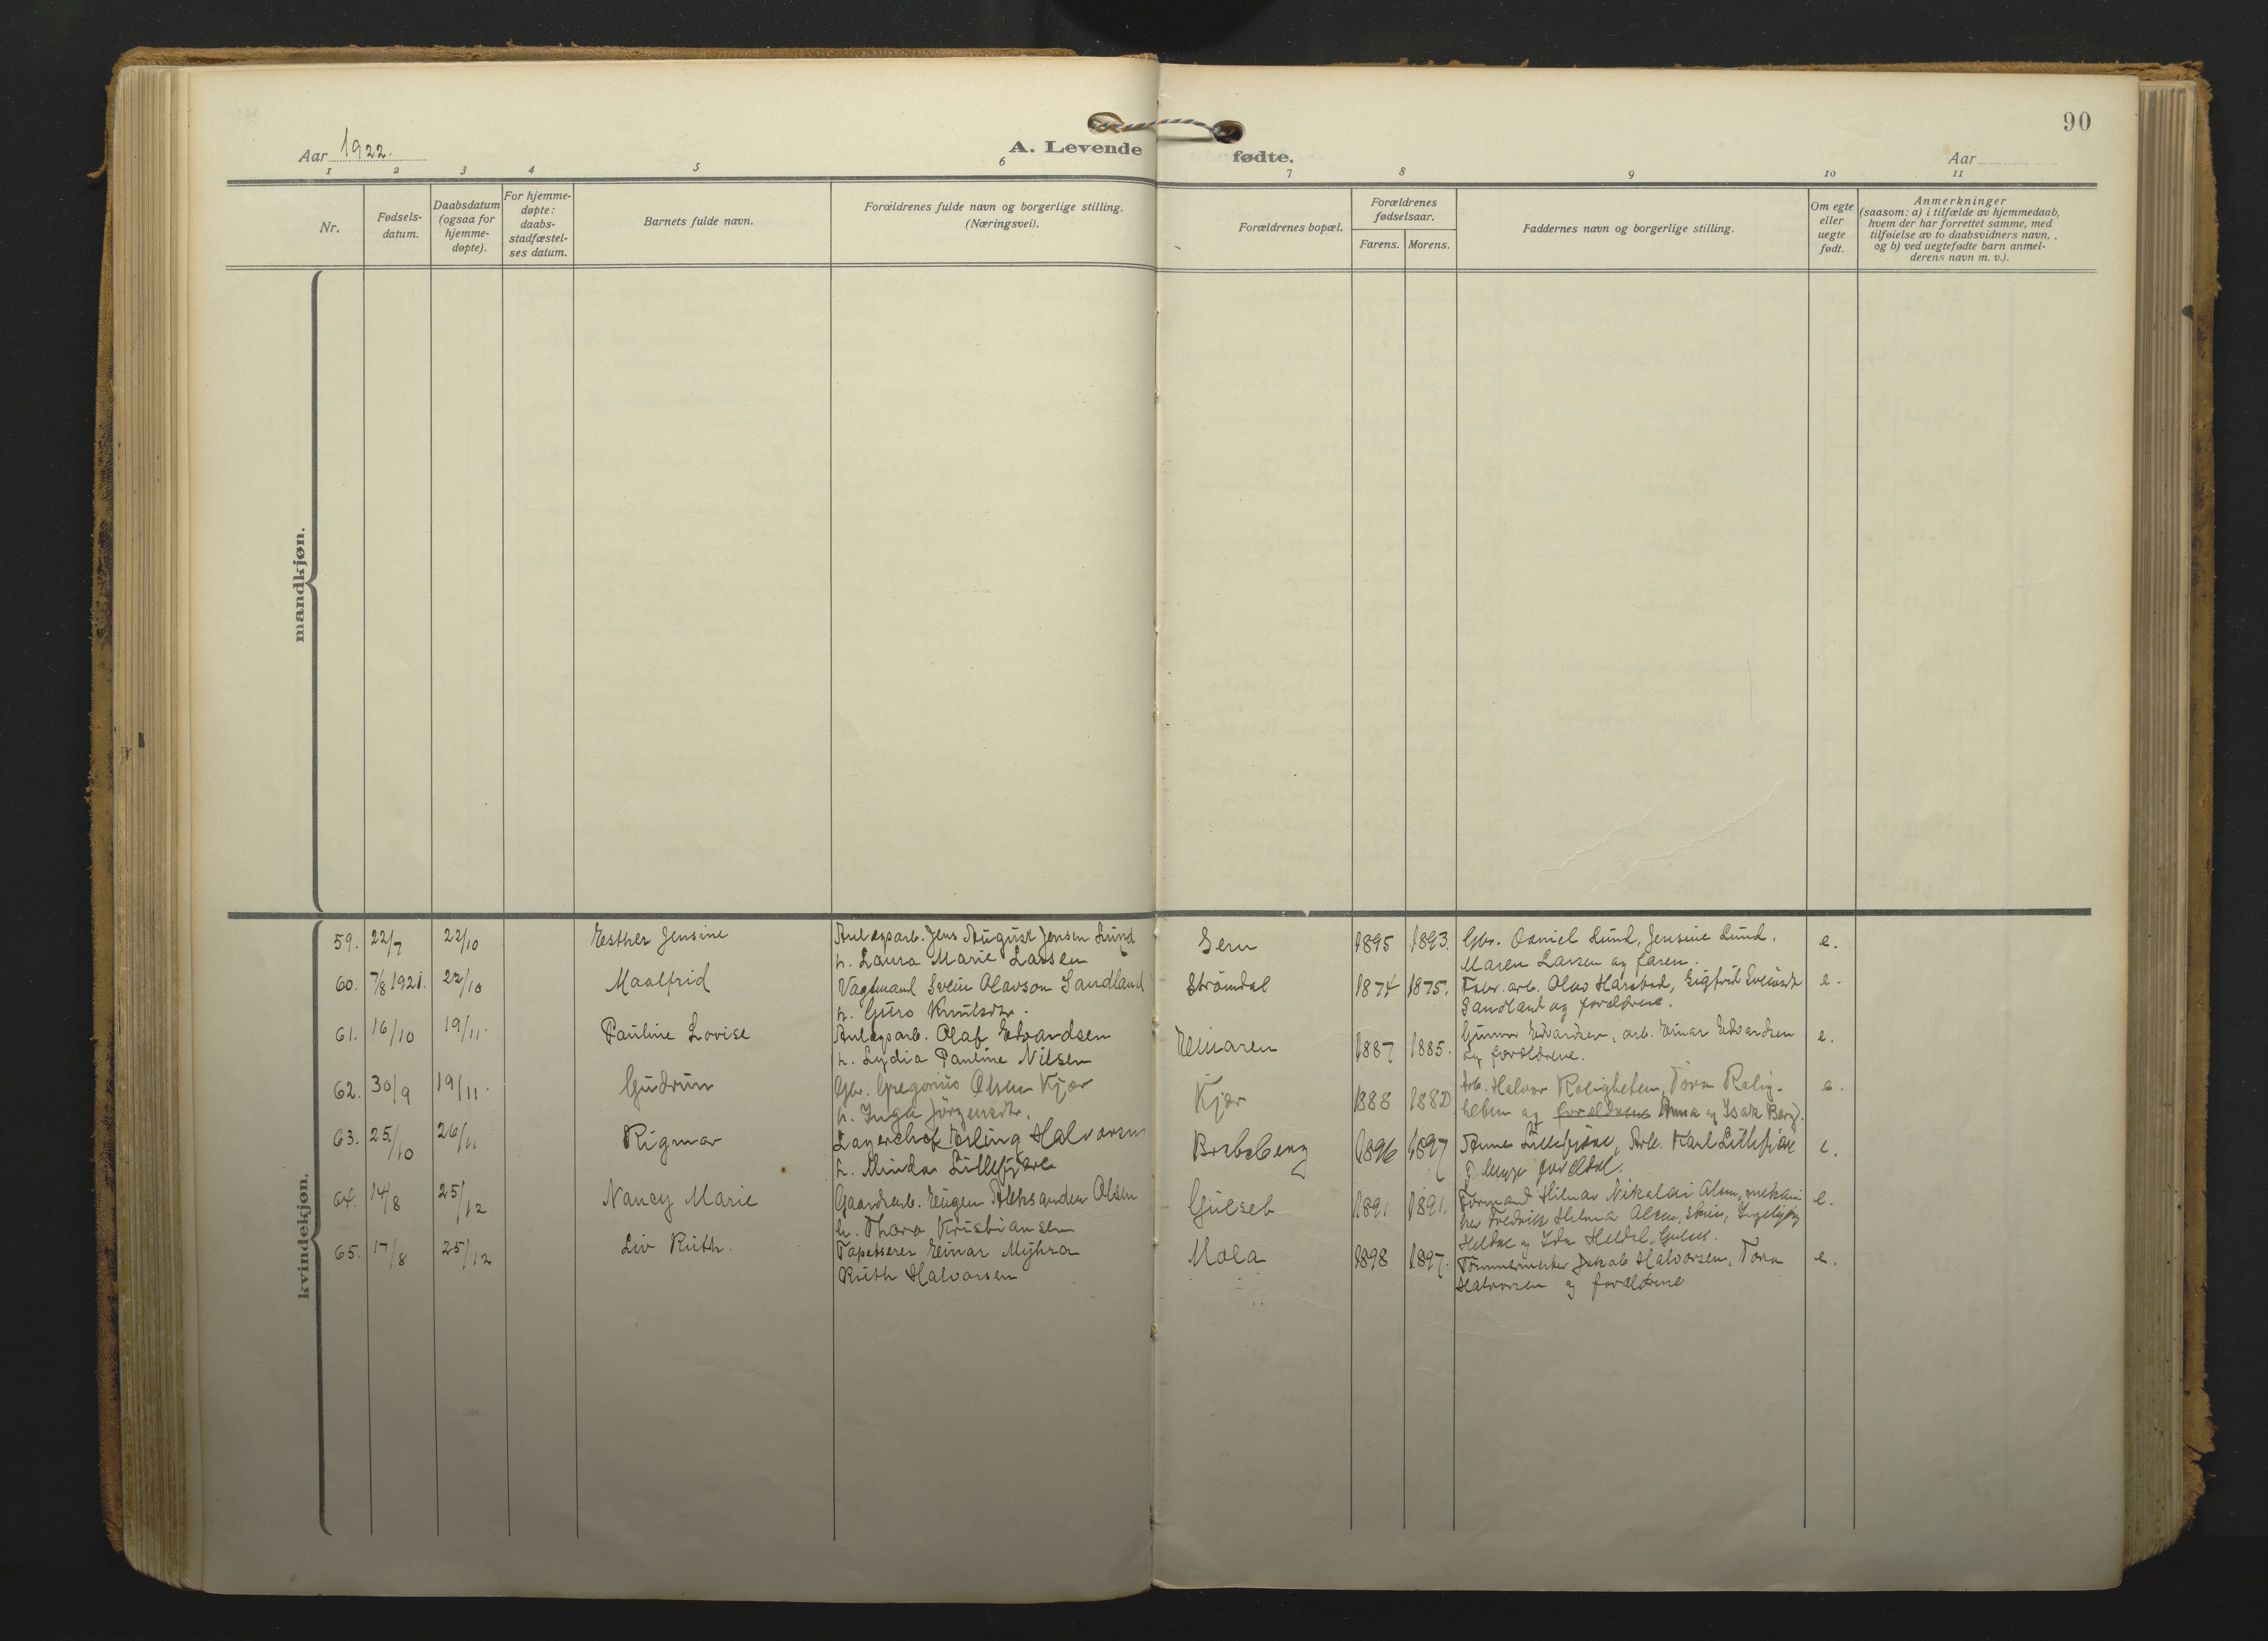 90
Aar 1922.
A. Levende fødte.
Aar
1 2 3 4 5 6 7 8 9 10 11
Nr.
Fødsels-
datum.
Daabsdatum
(ogsaa for
hjemme-
døpte).
For hjemme-
døpte:
daabs-
stadfæstel-
ses datum.
Barnets fulde navn.
Forældrenes fulde navn og borgerlige stilling.
(Næringsvei).
Forældrenes bopæl.
Forældrenes
fødselsaar.
Farens. Morens.
Faddernes navn og borgerlige stilling.
Om egte
eller
uegte
født.
Anmerkninger
(saasom: a) i tilfælde av hjemmedaab,
hvem der har forrettet samme, med
tilføielse av to daabsvidners navn,
og b) ved uegtefødte barn anmel-
derens navn m. v.).
mandkjøn.
kvindekjøn.
59. 22/7 22/10 Esther Jensine Anlægsarb. Jens August Jensen Lund Sem 1895 1893. Gbr. Daniel Lund, Jensine Lund. e.
h. Laura Marie Larsen Maren Larsen og faren.
60. 7/8 1921. 22/10 Maalfrid Vagtmand Svein Olavson Sandland Strømdal 1874 1875. Fabr. arb. Olav Harstad, Sigfrid e.
h. Guro Knutsdtr. Sandland og forældrene.
61. 16/10 19/11. Pauline Lovise Anlægsarb. Olaf Edvardsen Einaren 1887 1885. Gunvor Edvardsen, arb. Einar Edvardsen e.
h. Lydia Pauline Nilsen og forældrene.
62. 30/9 19/11. Gudrun Gbr. Gregorius Olsen Kjær Kjær 1888 1880 Arb. Halvor Roligheten, Tora Rolig- e.
h. Inga Jörgensdtr. heten og forældrene Anna og Isak Berg.
63. 25/10 26/11 Rigmor Lagerchef Erling Halvorsen 1896 1897 Anne Lillefjære, Arb. Karl Lillefjære e.
h. Minda Lillefjære
64. 14/8 25/12 Nancy Marie Gaardsarb. Eugen Aleksander Olsen Gulset 1891 1891. Formand Hilmar Nikolai Olsen, mekani- e.
h. Thora Kristiansen ker Fredrik Helmer Olsen, Skien, Ingebjørg
og Ida
65. 17/8 25/12 Liv Ruth. Tapetserer Einar Myhra Mæla 1898 1897. Tømmermester Jakob Halvorsen, Tora e.
Ruth Halvorsen Halvorsen og forældrene